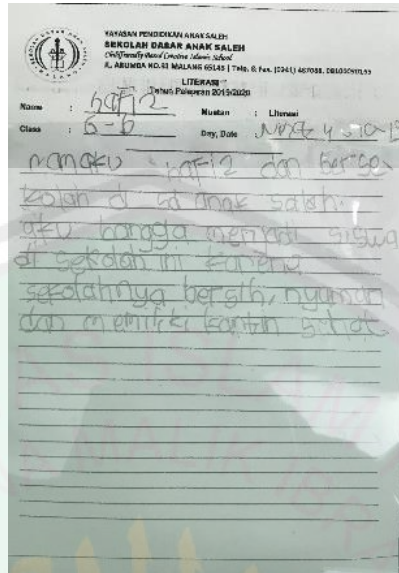 YAYASAN PENDIDIKAN ANAK SALEH
SEKOLAH DASAR ANAK SALEH
Childfriendly Based Creative Islamic School
JL. ARUMBA NO.31 MALANG 65143 | Telp. & Fax. (0341) 487088,
LITERASI
Tahun Pelajaran 2019/2020
Name : hafiz
Muatan : Literasi
Class : 6-b
Day, Date :
namaku hafiz dan berse
kolah di sd anak saleh.
aku bangga menjadi siswa
di sekolah ini karena
sekolahnya bersih, nyaman
dan memiliki kantin sehat.